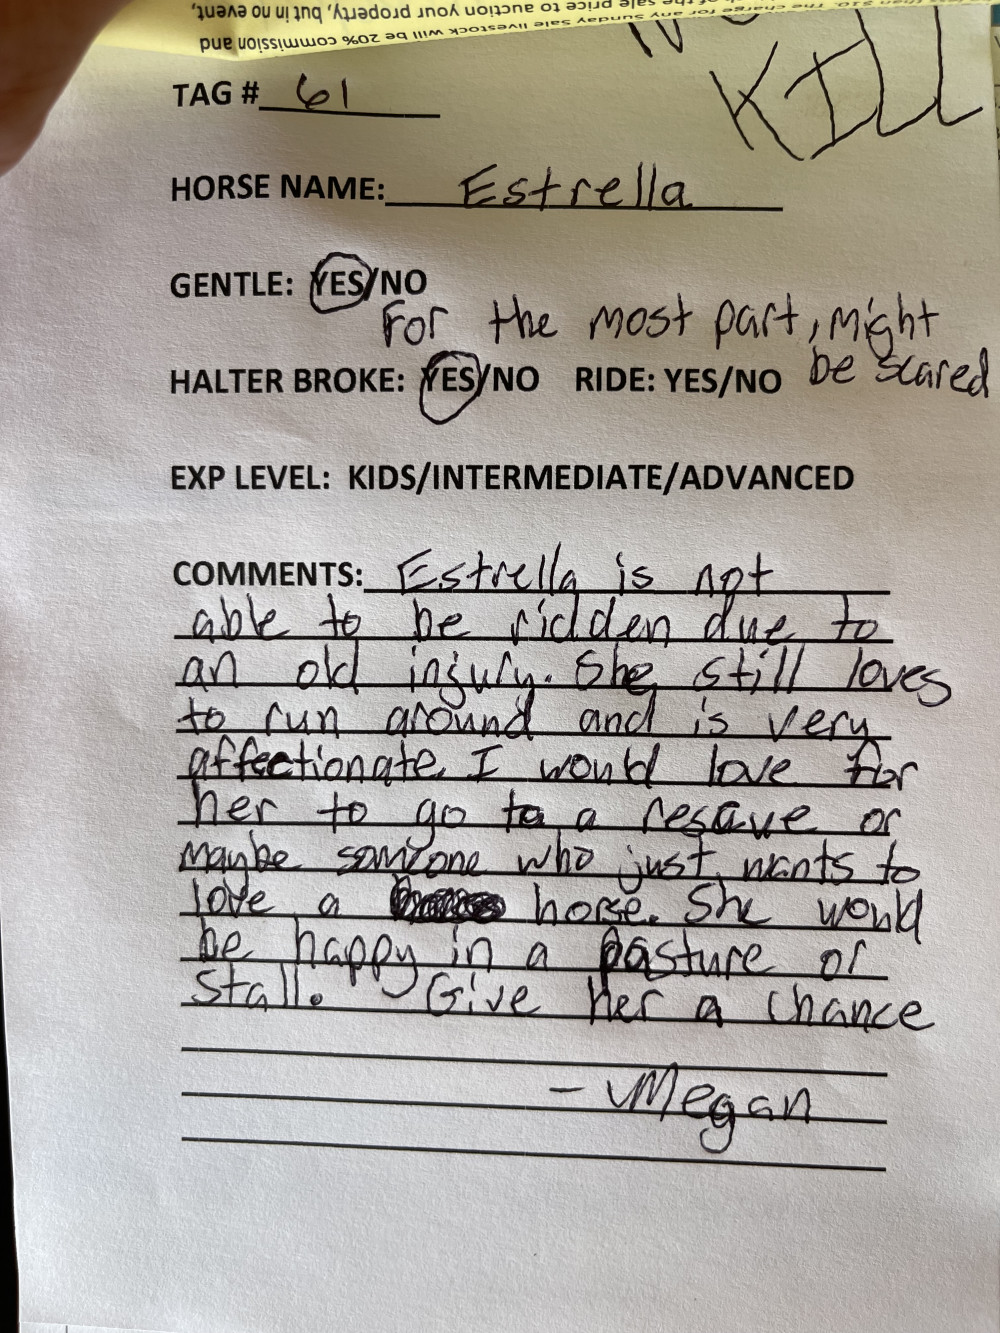 the sale price to auction your property, but in no event,
sunday sale livestock will be 20% commission and
KILL
TAG # 61
HORSE NAME: Estrella
GENTLE: YES/NO
For the most part, might
be scared
HALTER BROKE: YES/NO RIDE: YES/NO
EXP LEVEL: KIDS/INTERMEDIATE/ADVANCED
COMMENTS: Estrella is not
able to be ridden due to
an old injury. She still loves
to run around and is very
affectionate. I would love for
her to go to a rescue or
maybe someone who just wants to
love a horse. She would
be happy in a pasture or
stall. Give her a chance
- Megan